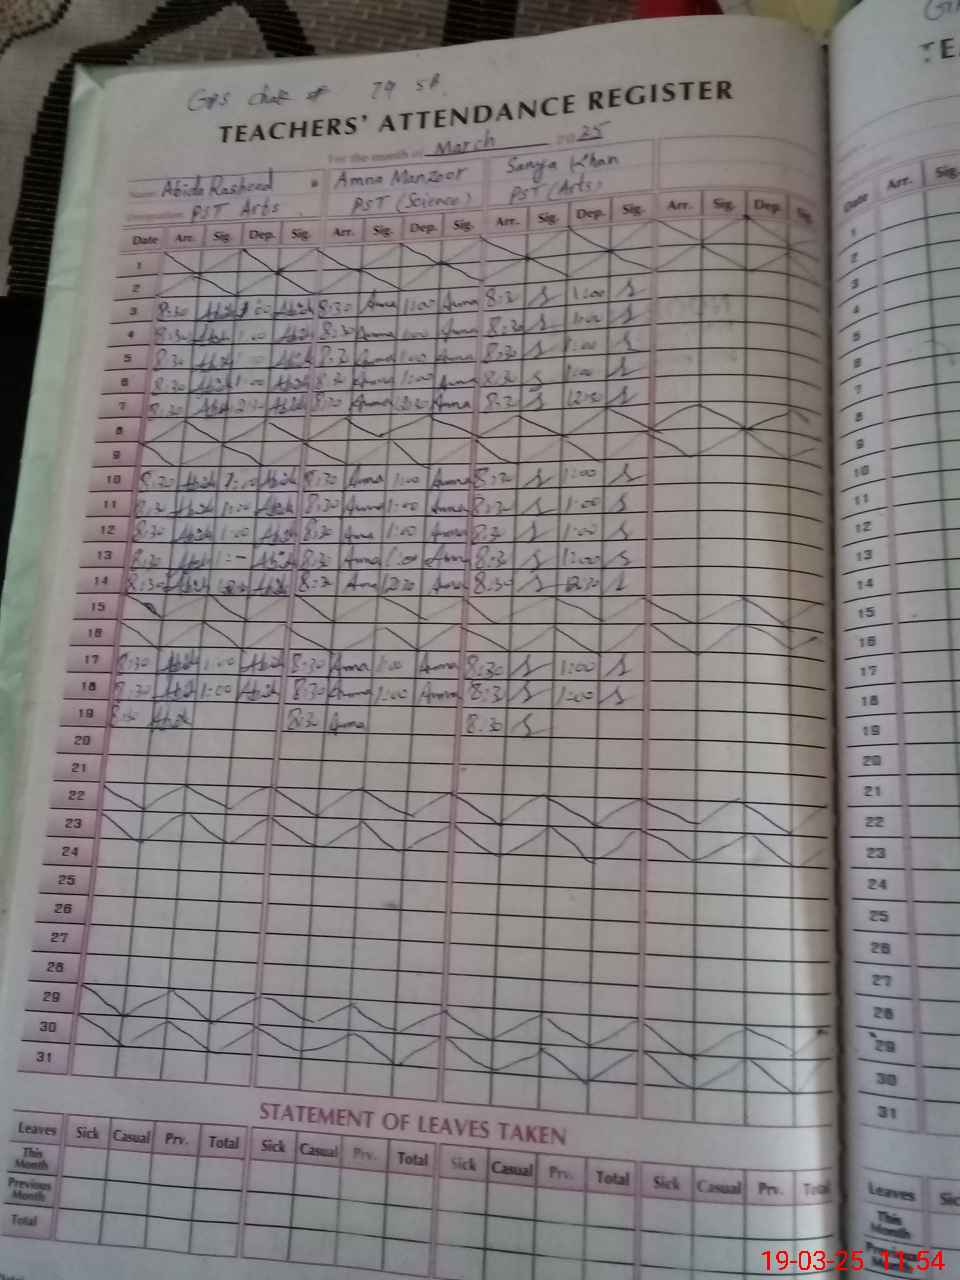 GPS Chak # 79 SB.
TEACHERS' ATTENDANCE REGISTER
For the month of March 2025
Name Abida Rasheed Amna Manzoor Sanya Khan
PST Arts PST (Science) PST (Arts)
Date Arr. Sig. Dep. Sig. Arr. Sig. Dep. Sig. Arr. Sig. Dep. Sig. Arr. Sig. Dep. Sig.
1
2
3 8:30 Abida 1:00 Abida 8:30 Amna 1:00 Amna 8:30 1:00
4 8:30 Abida 1:00 Abida 8:30 Amna 1:00 Amna 8:30 1:00
5 8:30 Abida 1:00 Abida 8:30 Amna 1:00 Amna 8:30 1:00
6 8:30 Abida 1:00 Abida 8:30 Amna 1:00 Amna 8:30 1:00
7 8:30 Abida Abida 8:30 Amna 12:30 Amna 8:30 12:30
8
9
10 8:30 Abida 1:00 Abida 8:30 Amna 1:00 Amna 8:30 1:00
11 8:30 Abida 1:00 Abida 8:30 Amna 1:00 Amna 8:30 1:00
12 8:30 Abida 1:00 Abida 8:30 Amna 1:00 Amna 8:30 1:00
13 8:30 Abida 1:- Abida 8:30 Amna 1:00 Amna 8:30 1:00
14 8:30 Abida Abida 8:30 Amna 12:30 Amna 8:30 12:30
15
16
17 8:30 Abida 1:00 Abida 8:30 Amna 1:00 Amna 8:30 1:00
18 8:30 Abida 1:00 Abida 8:30 Amna 1:00 Amna 8:30 1:00
19 8:30 Abida 8:30 Amna 8:30
20
21
22
23
24
25
26
27
28
29
30
31
STATEMENT OF LEAVES TAKEN
Leaves Sick Casual Prv. Total Sick Casual Prv. Total Sick Casual Prv. Total Sick Casual Prv. Total
This Month
Previous Month
Total
TE
Date Arr. Sig.
1
2
3
4
5
6
7
8
9
10
11
12
13
14
15
16
17
18
19
20
21
22
23
24
25
26
27
28
29
30
31
Leaves
This Month
Previous Month
19-03-25 11:54